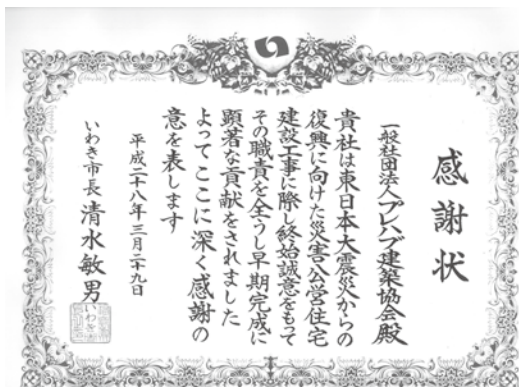 感謝状
一般社団法人プレハブ建築協会殿
貴社は東日本大震災からの
復興に向けた災害公営住宅
建設工事に際し終始誠意をもって
その職責を全うし早期完成に
顕著な貢献をされました
よってここに深く感謝の
意を表します
平成二十八年三月二十九日
いわき市長 清水敏男